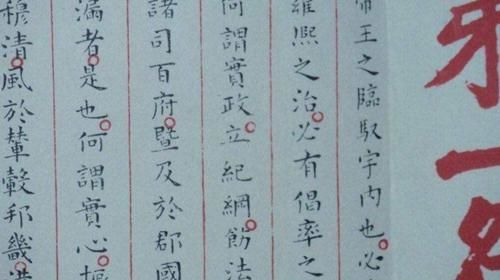 第一
帝王之臨馭宇内也必
雍熙之治必有倡率之
何謂實政立紀綱飭法
諸司百府暨及於郡國
漏者是也何謂實心振
穆清風於輦轂邦畿